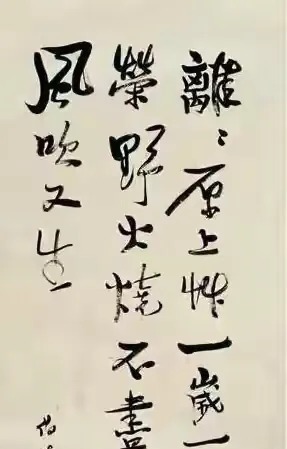 離〻原上艸一歲一
榮野火燒不盡
風吹又生